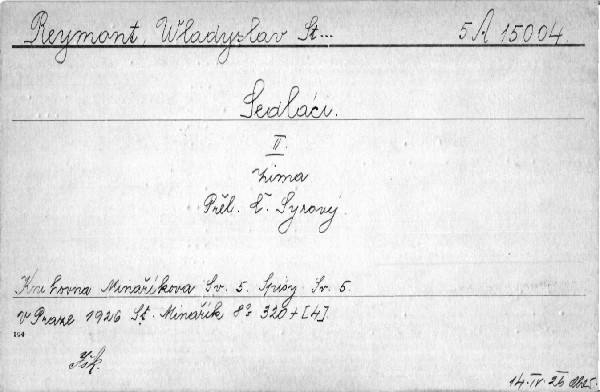 Reymont, Władysłav St... 5 A 15004
Sedláci.
II.
Zima
Přel. L. Syrový
Knihovna Minaříkova Sv. 5. Spisy Sv. 5
V Praze 1926 St. Minařík 8° 320+[4].
14. IV. 26